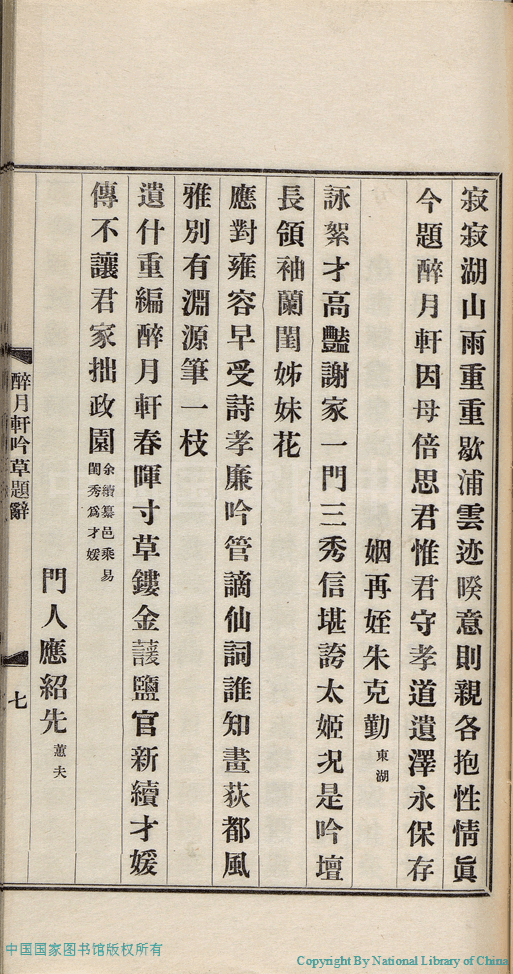 寂寂湖山雨重重歇浦雲迹暌意則親各抱性情眞
今題醉月軒因母倍思君惟君守孝道遺澤永保存
姻再姪朱克勤東湖
詠絮才高豔謝家一門三秀信堪誇太姬況是吟壇
長領袖蘭閨姊妹花
應對雍容早受詩孝廉吟管謫仙詞誰知畫荻都風
雅別有淵源筆一枝
遺什重編醉月軒春暉寸草鏤金諼鹽官新續才媛
傳不讓君家拙政園余續纂邑乘易閨秀爲才媛
門人應紹先蕙夫
醉月軒吟草題辭
七
中国国家图书馆版权所有
Copyright By National Library of China